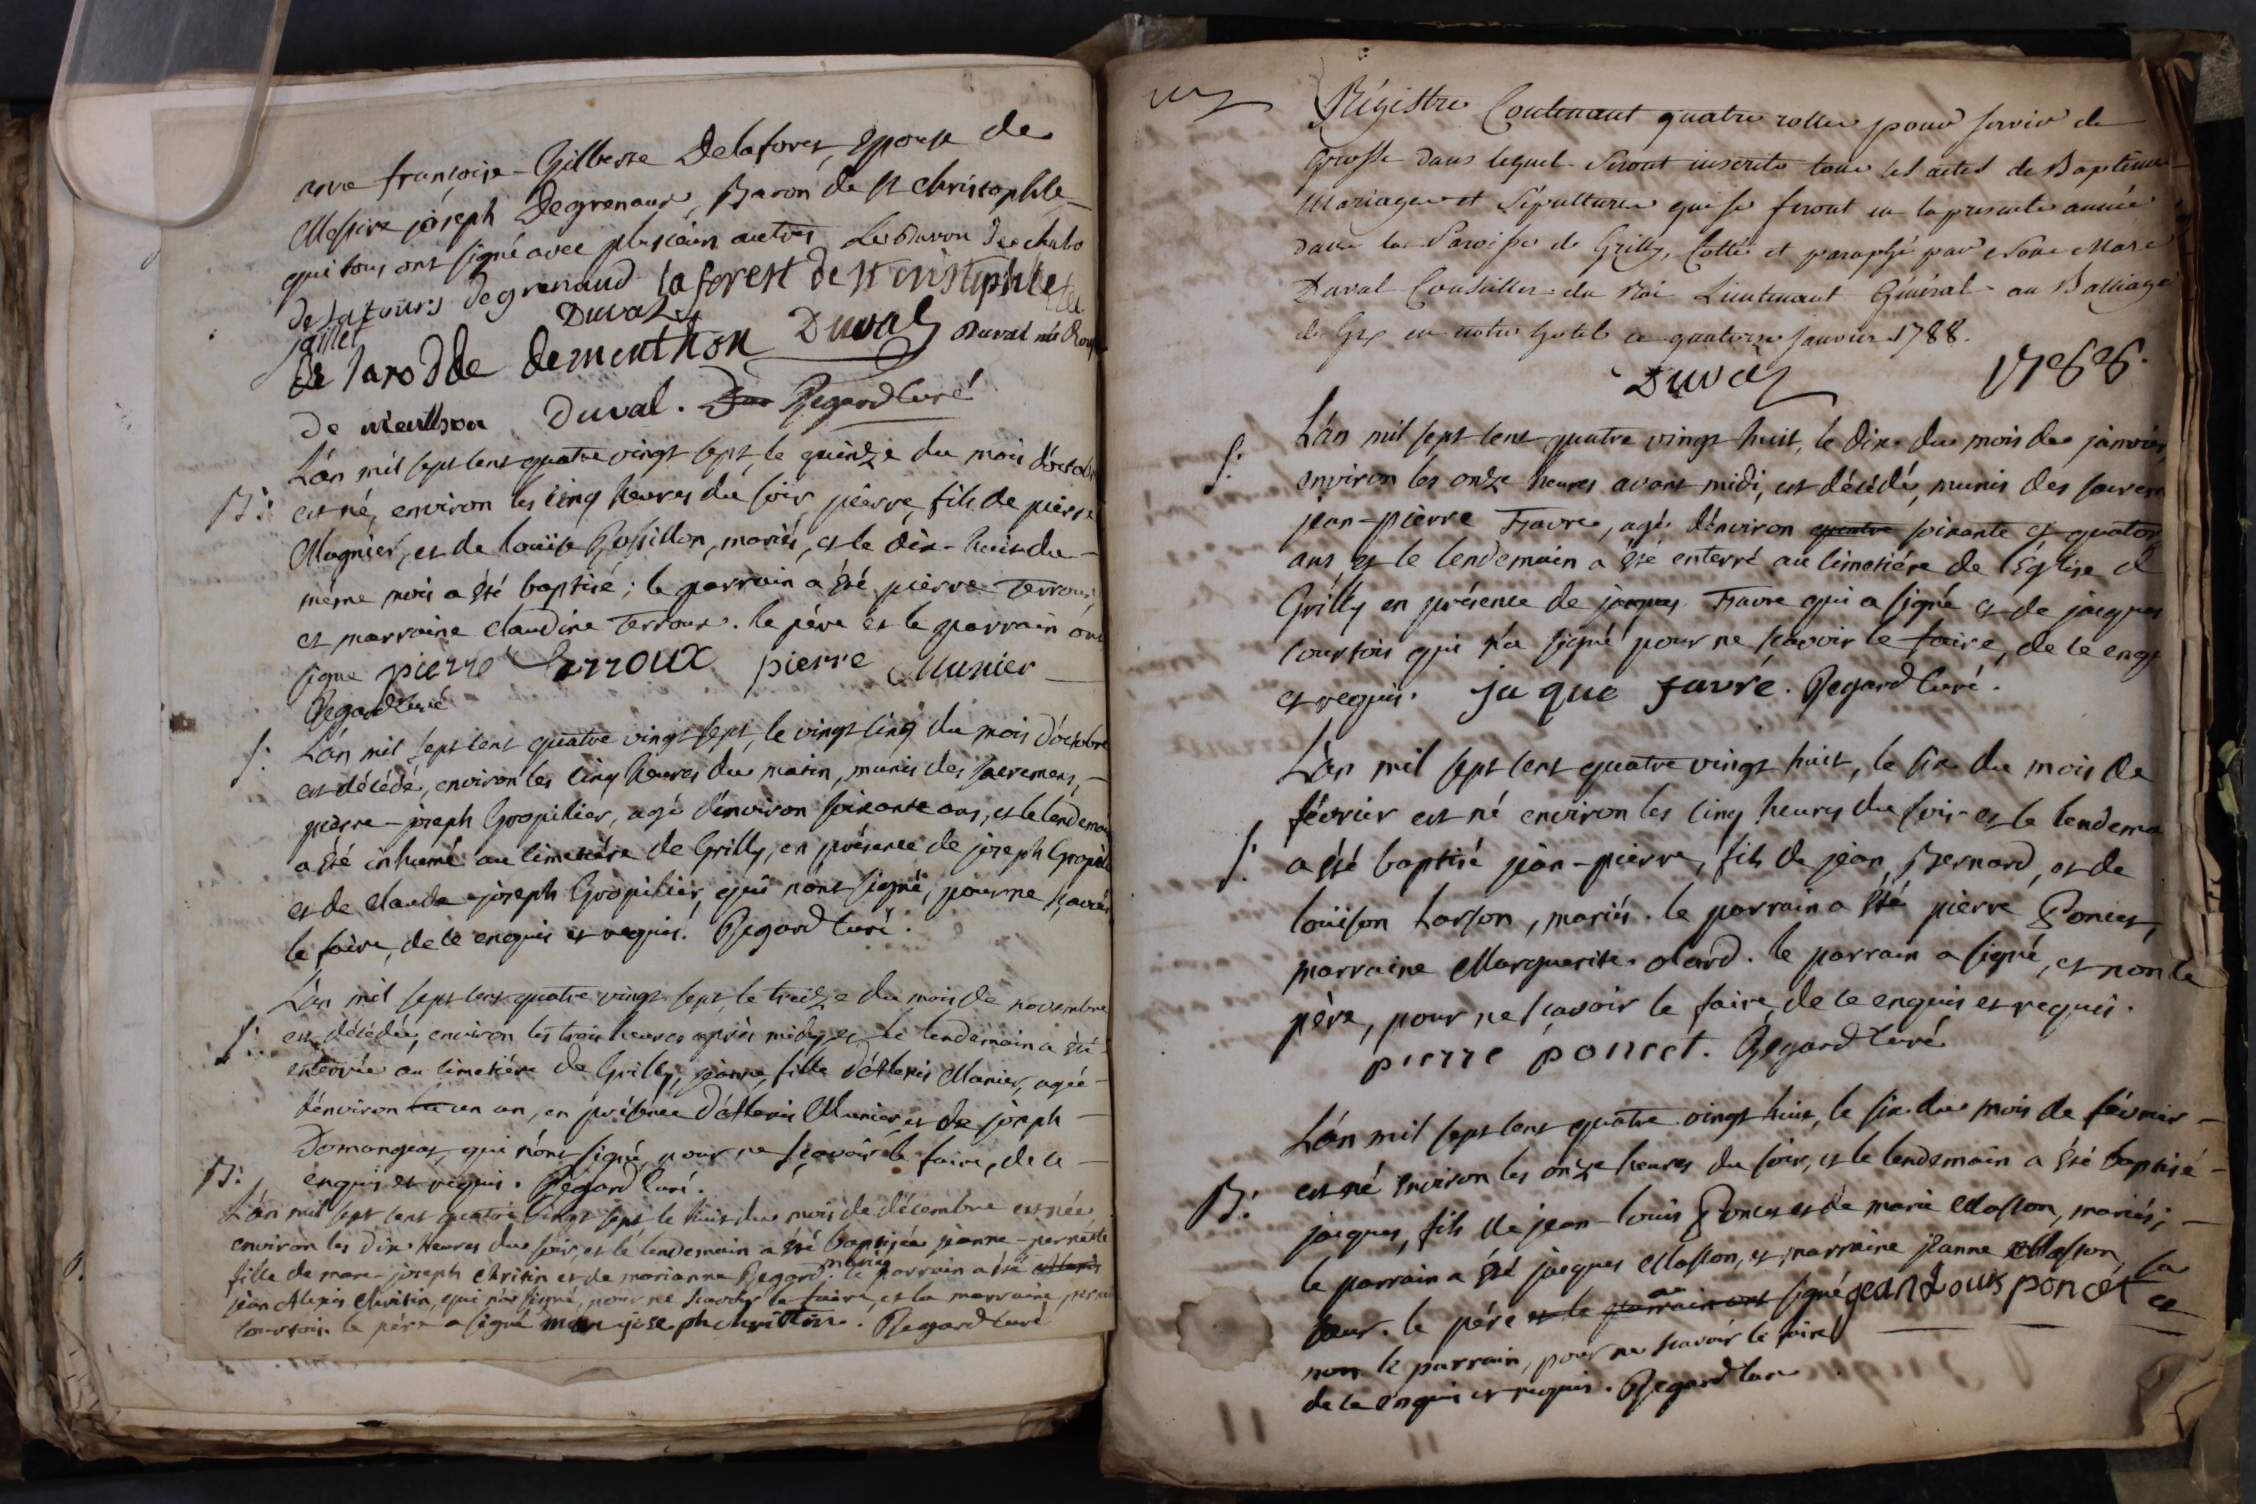 françoise-Gilberte Delaforest, Epouse de
Messire joseph Degrenaud, Baron de st christophle
qui tous ont signé avec plusieurs autres Le Baron de
Degrenaud la forest de st cristophle
jaillet Duval
De menthon Duval Duval née
De menthon Duval. Regard Curé
L'an mil sept cent quatre vingt sept, le quinze du mois d'octobre
B: est né, environ les cinq heures du soir, pierre, fils de pierre
Magnier, et de Louise Rossillon, mariés, et le dix-huit du
même mois a été baptisé; le parrain a été pierre Terroux,
et marraine claudine Terroux. le père et le parrain ont
signé pierre Terroux pierre Munier
Regard Curé
S: L'an mil sept cent quatre vingt sept, le vingt cinq du mois d'octobre
est décédé, environ les cinq heures du matin, munis des sacremens,
pierre-joseph Gropilier, agé d'environ soixante ans, et le lendemain
a été inhumé au cimetière de Grilly, en présence de joseph Gropilier
et de claude joseph Gropilier, qui n'ont signé, pour ne sçavoir
le faire, de ce enquis et requis. Regard Curé.
L'an mil sept cent quatre vingt sept, le treize du mois de novembre
S: est décédée, environ les trois heures après midy, et le lendemain a été
enterrée au cimetière de Grilly, jeanne, fille d'Alexis Manier, agée
d'environ un an, en présence d'Alexis Munier, et de joseph
Domangeat, qui n'ont signé, pour ne sçavoir le faire, de ce
enquis et requis. Regard Curé.
B: L'an mil sept cent quatre vingt sept le huit du mois de décembre est née
environ les dix heures du soir, et le lendemain a été baptisée jeanne-pernette
fille de marc-joseph christin et de marianne Regard, mariés. le parrain a été
jean Alexis christin, qui n'a signé, pour ne sçavoir le faire, et la marraine
Courtois. le père a signé marc joseph christin. Regard Curé
Régistre Contenant quatre rolles pour servir de
Grosse dans lequel seront inscrits tous les actes de Baptême
Mariages et Sépultures qui se feront en la presente année
dans la Paroisse de Grilly, Cotté et paraphé par Nous Marc
Duval Conseiller du Roi Lieutenant Général au Balliage
de Gex en notre hotel ce quatorze janvier 1788.
Duval 1788.
S: L'an mil sept cent quatre vingt huit, le dix du mois de janvier,
environ les onze heures avant midi, est décédé, munis des sacremens
jean-pierre Favre, agé d'environ quatre soixante et quator
ans et le lendemain a été enterré au cimetière de l'église de
Grilly en présence de jacques Favre qui a signé et de jacques
Courtois qui n'a signé pour ne scavoir le faire, de ce enqs
et requis. jaque favre. Regard Curé.
L'an mil sept cent quatre vingt huit, le six du mois de
février est né environ les cinq heures du soir et le lendema
S: a été baptisé jean-pierre, fils de jean Bernard, et de
Louison Larson, mariés. le parrain a été pierre Poncet,
marraine Marguerite olard. le parrain a signé, et non le
père, pour ne sçavoir le faire, de ce enquis et requis.
pierre poncet. Regard Curé
L'an mil sept cent quatre vingt huit, le six du mois de février
B: est né environ les onze heures du soir, et le lendemain a été baptisé
jacques, fils de jean-Louis Poncet et de marie Masson, mariés;
le parrain a été jacques Masson, et marraine jeanne Masson, sa
soeur. le père et le parrain ont a signé jean Louis poncet et
non le parrain, pour ne scavoir le faire
de ce enquis et requis. Regard Curé